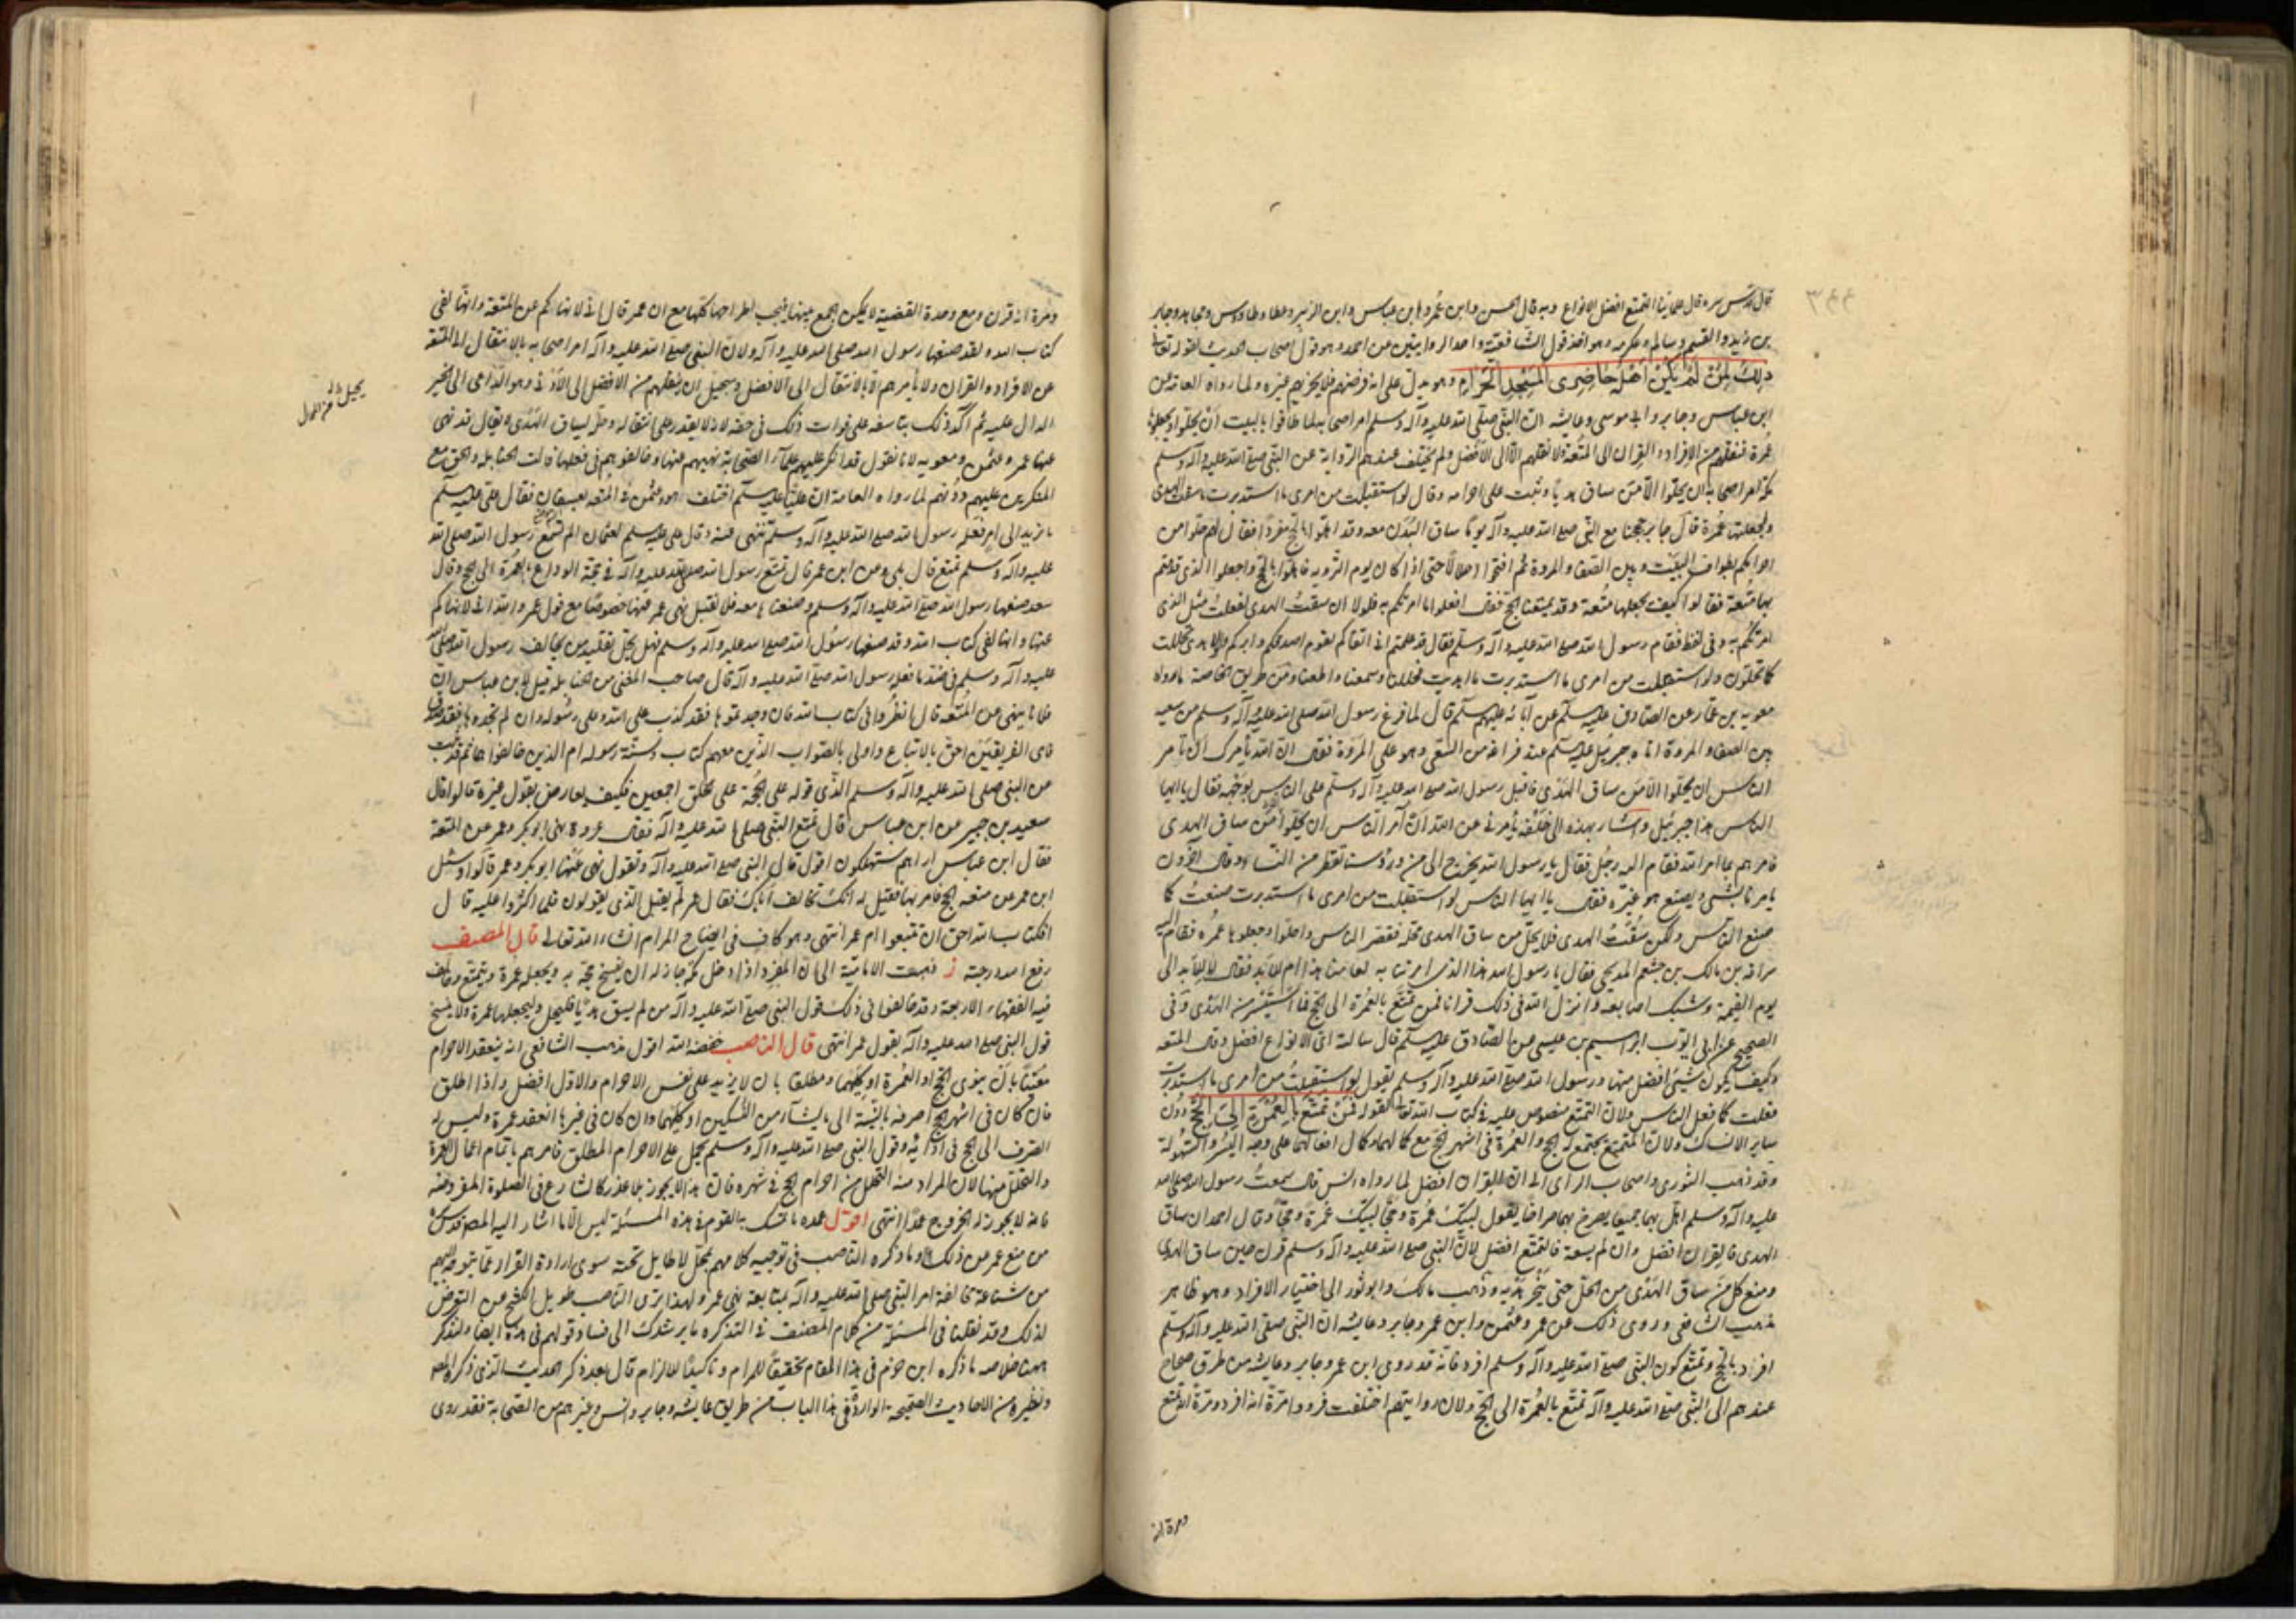 قال قدس سره قال علمائنا التمتع افضل الانواع وبه قال الحسن وابن عمر وابن عباس وابن الزبير وعطا وطاوس ومجاهد وجابر
بن زيد والقسم وسالم وعكرمه وهو احد قول الشافعية واحد الروايتين عن احمد وهو قول اصحاب الحديث لقوله تعالى
ذلك لمن لم يكن اهله حاضرى المسجد الحرام وهو يدل على انه فرضهم فلا يجزيهم غيره ولما رواه العامة عن
ابن عباس وجابر وابى موسى وعايشه ان النبى صلى الله عليه وآله وسلم امر اصحابه لما طافوا بالبيت ان يحلوا ويجعلوها
عمرة فنقلهم من الافراد والقران الى المتعة ولا ينقلهم الا الى الافضل ولم يختلف عندهم الرواية عن النبى صلى الله عليه وآله وسلم
مكة امر اصحابه ان يحلوا الا من ساق هديا وثبت على احرامه وقال لو استقبلت من امرى ما استدبرت ما سقت الهدى
ولجعلتها عمرة قال جابر حججنا مع النبى صلى الله عليه وآله يوم ساق البدن معه وقد اهلوا بالحج مفردا فقال لهم حلوا من
احرامكم بطواف البيت وبين الصفا والمروة ثم اقيموا حلالا حتى اذا كان يوم التروية فاهلوا بالحج واجعلوا الذى قدمتم
بها متعة فقالوا كيف نجعلها متعة وقد سمينا الحج فقال افعلوا ما امرتكم به فلولا ان سقت الهدى لفعلت مثل الذى
امرتكم به وفى لفظ فقام رسول الله صلى الله عليه وآله وسلم فقال قد علمتم انى اتقاكم لله واصدقكم وابركم ولولا هديى لحللت
كما تحلون ولو استقبلت من امرى ما استدبرت ما اهديت فحللنا وسمعنا واطعنا ومن طريق الخاصة ما رواه
معوية بن عمار عن الصادق عليه سلم عن آبائه عليهم سلم قال لما فرغ رسول الله صلى الله عليه وآله وسلم من سعيه
بين الصفا والمروة اتاه جبرئيل عليه سلم عند فراغه من السعى وهو على المروة فقال ان الله يأمرك ان تامر
الناس ان يحلوا الا من ساق الهدى فاقبل رسول الله صلى الله عليه وآله وسلم على الناس بوجهه فقال يا ايها
الناس هذا جبرئيل واشار بيده الى خلفه يأمرنى عن الله ان آمر الناس ان يحلوا الا من ساق الهدى
فامرهم بما امر الله فقام اليه رجل فقال يا رسول الله نخرج الى منى ورؤسنا تقطر من النساء وقال آخرون
يامرنا بشى ويصنع هو غيره فقال يا ايها الناس لو استقبلت من امرى ما استدبرت صنعت كما
صنع الناس ولكن سقت الهدى فلا يحل من ساق الهدى محله فقصر الناس واحلوا وجعلوها عمرة فقام اليه
سراقه بن مالك بن جشعم المدلجى فقال يا رسول الله هذا الذى امرتنا به لعامنا هذا ام للابد فقال للابد الى
يوم القيمة وشبك اصابعه وانزل الله فى ذلك قرانا فمن تمتع بالعمرة الى الحج فما استيسر من الهدى وفى
الصحيح عن ابى ايوب ابراهيم بن عيسى عن الصادق عليه سلم قال سالته اى الانواع افضل وقال المتعه
وكيف يكون شيئى افضل منها ورسول الله صلى الله عليه وآله وسلم يقول لو استقبلت من امرى ما استدبرت
فعلت كما فعل الناس ولان التمتع منصوص عليه فى كتاب الله تعالى لقوله فمن تمتع بالعمرة الى الحج دون
ساير الانساك ولان المتمتع يجتمع له الحج والعمرة فى اشهر الحج مع كمالهما وكمال افعالهما على وجه اليسر والسهولة
وقد ذهب الثورى واصحاب الراى الى ان القران افضل لما رواه انس قال سمعت رسول الله صلى الله
عليه وآله وسلم اهل بهما جميعا يصرخ بهما صراخا يقول لبيك عمرة وحجا لبيك عمرة وحجا وقال احمد ان ساق
الهدى فالقران افضل وان لم يسقه فالتمتع افضل لان النبى صلى الله عليه وآله وسلم قرن حين ساق الهدى
ومنع كل من ساق الهدى من الحل حتى ينحر هديه وذهب مالك وابو ثور الى اختيار الافراد وهو ظاهر
مذهب الشافعى وروى ذلك عن عمر وعثمن وابن عمر وجابر وعايشه ان النبى صلى الله عليه وآله وسلم
افرد بالحج وتمنع كون النبى صلى الله عليه وآله وسلم افرد فانه قد روى ابن عمر وجابر وعايشه من طرق صحاح
عندهم ان النبى صلى الله عليه وآله تمتع بالعمرة الى الحج ولان روايتهم اختلفت فرووا مرة انه افرد ومرة انه تمتع
ومرة انه
ومرة انه قرن ومع وحدة القضية لا يمكن الجمع بينها فيجب اطراحها كلها مع ان عمر قال انى لا نهاكم عن المتعة وانها لفى
كتاب الله ولقد صنعها رسول الله صلى الله عليه وآله ولان النبى صلى الله عليه وآله امر اصحابه بالانتقال الى المتعة
عن الافراد والقران ولا يأمرهم الا بالانتقال الى الافضل ويستحيل ان ينقلهم من الافضل الى الادنى وهو الداعى الى الخير
الدال عليه ثم اكد ذلك بتاسفه على فوات ذلك فى حقه لانه لا يقدر على انتقاله وحله لسياق الهدى لا يقال قد نهى
عنها عمر وعثمن ومعويه لانا نقول قد انكر عليهم علماء الصحابة نهيهم عنها وخالفوهم فى فعلها قالت الحنابلة والحق مع
المنكرين عليهم دونهم لما رواه العامة ان عليا عليه سلم اختلف هو وعثمن فى المتعه بعسفان فقال على عليه سلم
ما تريد الى امر فعله رسول الله صلى الله عليه وآله وسلم تنهى عنه وقال على عليه سلم لعثمان الم تسمع رسول الله صلى الله
عليه وآله وسلم تمتع قال بلى وعن ابن عمر قال تمتع رسول الله صلى الله عليه وآله فى حجة الوداع بالعمرة الى الحج وقال
سعد صنعها رسول الله صلى الله عليه وآله وسلم وصنعناها معه فلا نقبل نهى عمر عنها خصوصا مع قول عمر والله انى لانهاكم
عنها وانها لفى كتاب الله وقد صنعها رسول الله صلى الله عليه وآله وسلم فهل يحل تقليد من يخالف رسول الله صلى الله
عليه وآله وسلم فى ضد ما فعله رسول الله صلى الله عليه وآله قال صاحب المغنى من الحنابلة قيل لابن عباس ان
فلانا ينهى عن المتعة قال انظروا فى كتاب الله فان وجدتموها فقد كذب على الله وعلى رسوله وان لم تجدوها فقد صدق
فاى الفريقين احق بالاتباع واولى بالصواب الذين معهم كتاب الله وسنة رسوله ام الذين خالفوهما ثم قد ثبت
عن النبى صلى الله عليه وآله وسلم الذى قوله على الحجة على الخلق اجمعين فكيف يعارض بقول غيره قالوا قال
سعيد بن جبير عن ابن عباس قال تمتع النبى صلى الله عليه وآله فقال عروة نهى ابو بكر وعمر عن المتعة
فقال ابن عباس اراهم سيهلكون اقول قال النبى صلى الله عليه وآله وتقول نهى عنها ابو بكر وعمر قالوا وسئل
ابن عمر عن متعه الحج فامر بها فقيل له انك تخالف اباك فقال عمر لم يقل الذى يقولون فلما اكثروا عليه قال
افكتاب الله احق ان تتبعوا ام عمر انتهى وهو كاف فى ايضاح المرام انشاء الله تعالى قال المصنف
رفع الله درجته ز ذهبت الامامية الى ان المفرد اذا دخل مكة جاز له ان يفسخ حجه ويجعله عمرة ويتمتع وخالف
فيه الفقهاء الاربعة وقد خالفوا فى ذلك قول النبى صلى الله عليه وآله من لم يسق هديا فليحل وليجعلها عمرة ولا ينسخ
قول النبى صلى الله عليه وآله بقول عمر انتهى قال الناصب خفضه الله اقول مذهب الشافعى انه ينعقد الاحرام
معينا بان ينوى الحج او العمرة او كليهما ومطلقا بان لا يزيد على نفس الاحرام والاول افضل واذا اطلق
فان كان فى اشهر الحج صرفه بالنية الى ما يشاء من النسكين او كليهما وان كان فى غيرها انعقد عمرة وليس له
الصرف الى الحج فى اشهره وقول النبى صلى الله عليه وآله وسلم يحمل على الاحرام المطلق فامرهم باتمام اعمال العمرة
والتحلل منها لان المراد منه التحلل من احرام الحج فى شهره فان هذا لا يجوز بلا عذر كالشارع فى الصلوة المفروضة
فانه لا يجوز له الخروج عمدا انتهى اقول عمده ما تمسك به القوم فى هذه المسئلة ليس الا ما اشار اليه المصنف قدس سره
من منع عمر من ذلك وما ذكره الناصب فى توجيه كلامهم بمحل لا طايل تحته سوى ارادة الفرار عما يتوجه اليهم
من شناعة مخالفة امر النبى صلى الله عليه وآله بمتابعة نهى عمر ولهذا ترى الناصب طويل الكشح عن التعرض
لذلك وقد نقلنا فى المسئلة من كلام المصنف فى التذكره ما يرشدك الى فساد قولهم فى هذه ايضا ولنذكر
ههنا خلاصه ما ذكره ابن حزم فى هذا المقام تحقيقا للمرام وتاكيدا للالزام قال بعد ذكر الحديث الذى ذكره المصنف
ونظيره من الاحاديث الصحيحة الواردة فى هذا الباب من طريق عايشه وجابر وانس وغيرهم من الصحابة فقد روى